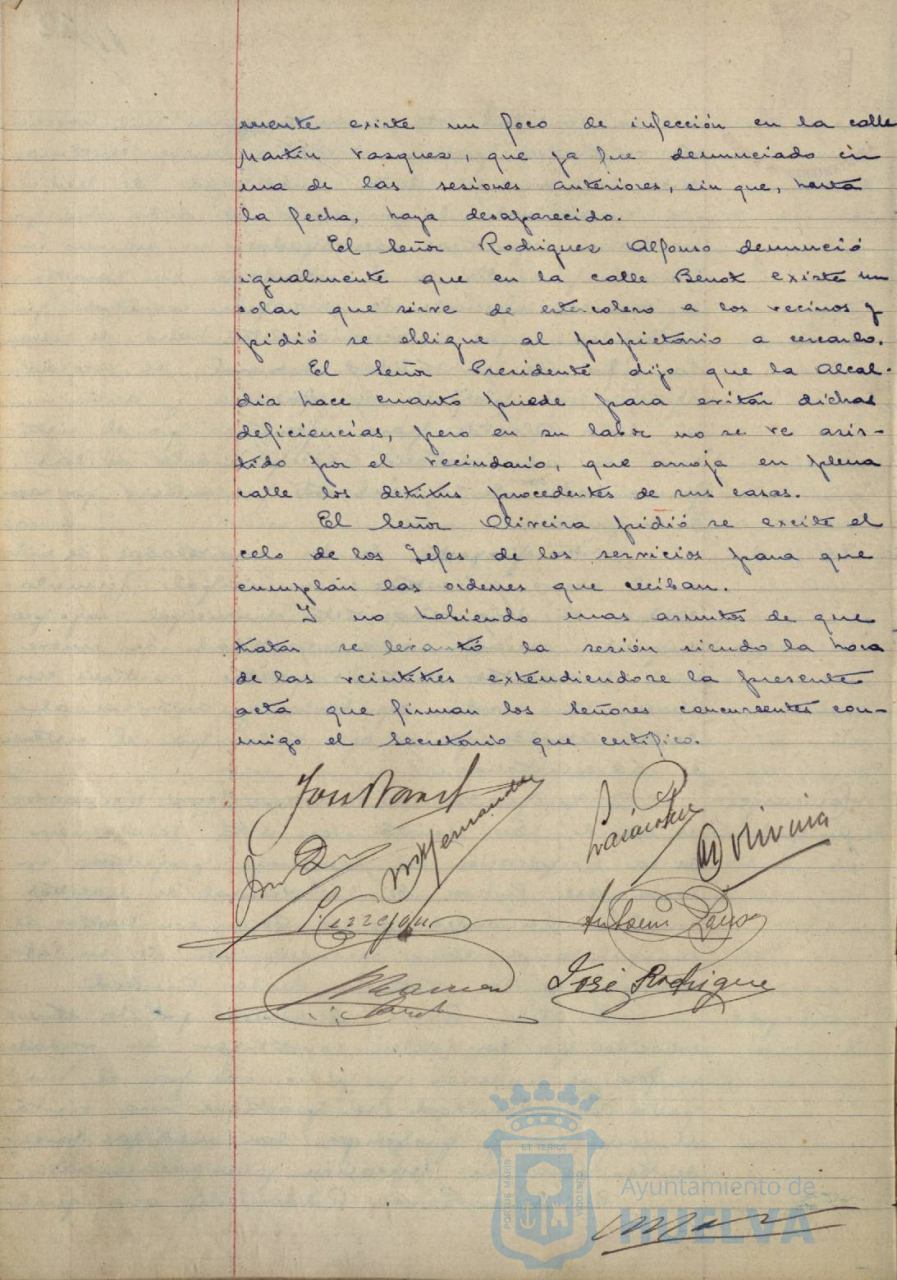 mente existe un foco de infección en la calle
Martín Vazquez, que ya fue denunciado en
una de las sesiones anteriores, sin que, hasta
la fecha, haya desaparecido.
El Señor Rodriguez Alfonso denunció
igualmente que en la calle Benot existe un
solar que sirve de estercolero a los vecinos y
pidió se obligue al propietario a cercarlo.
El Señor Presidente dijo que la Alcal-
dia hace cuanto puede para evitar dichas
deficiencias, pero en su labor no se ve asis-
tido por el vecindario, que arroja en plena
calle los detritus procedentes de sus casas.
El Señor Oliveira pidió se excite el
celo de los Jefes, de los servicios para que
cumplan las ordenes que reciban.
Y no habiendo mas asuntos de que
tratar se levantó la sesión siendo la hora
de las veintitrés extendiendose la presente
acta que firman los Señores concurrentes con-
migo el Secretario que certifico.
Hernandez
Oliveira
P. Cerrejon
Antonio
José Rodriguez
Ayuntamiento de
HUELVA